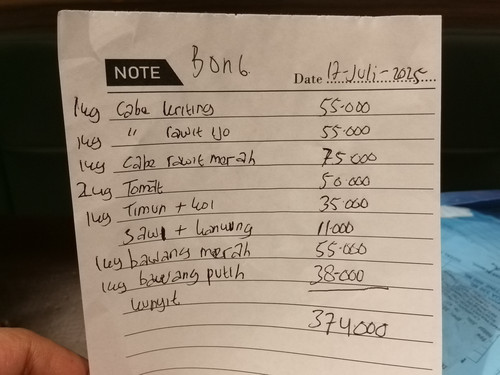 Bon 6.
NOTE Date 17-Juli-2025
1kg Cabe kriting 55.000
1kg " rawit ijo 55.000
1kg Cabe rawit merah 75.000
2kg Tomat 50.000
1kg Timun + kol 35.000
Sawi + kancung 11.000
1kg bawang merah 55.000
1kg bawang putih 38.000
kunyit
374000